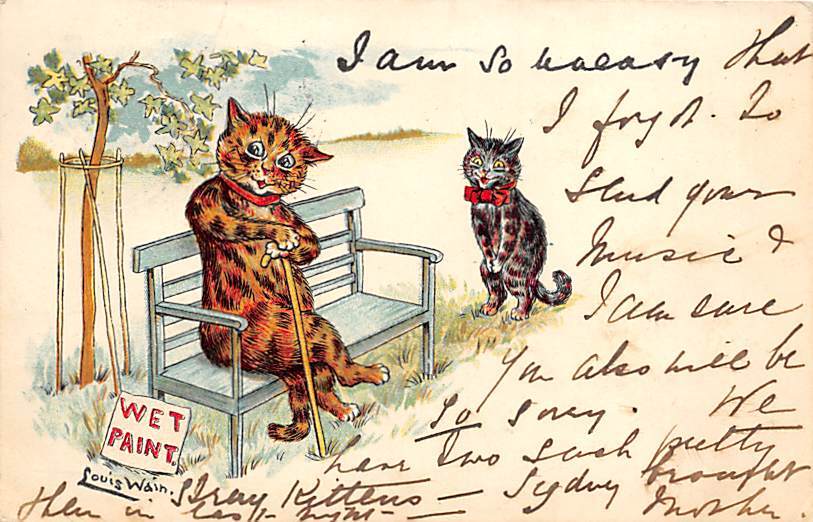 I am so uneasy that
I forgot to
send your
Music &
I am sure
You also will be
so sorry. We
have two such pretty
stray Kittens — Sydney brought
them in last night — Mother.
WET
PAINT.
Louis Wain.